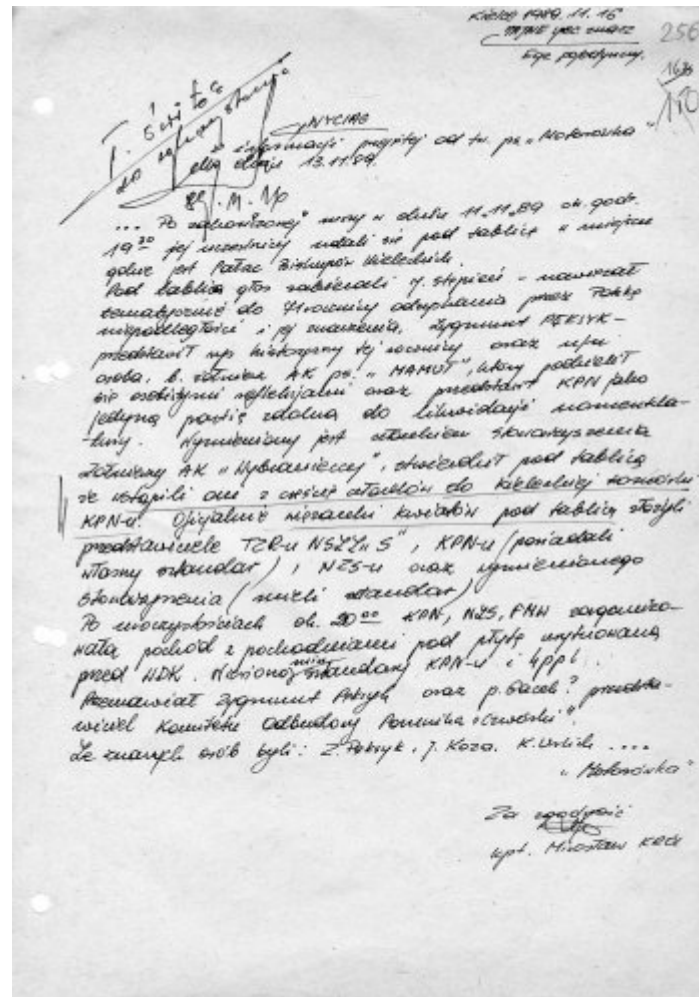 Kielce 1989.11.16
256
Egz. pojedynczy.
T. Świtoc
do
WYCIĄG
z informacji przyjętej od tw. ps. „Motorówka”
dnia 13.11.89.
... Po zakończonej mszy w dniu 11.11.89 ok. godz.
19³⁰ jej uczestnicy udali się pod tablicę w miejscu
gdzie jest Pałac Biskupów Kieleckich.
Pod tablicą głos zabierali J. Stępień - nawiązał
tematycznie do 71 rocznicy odzyskania przez Polskę
niepodległości i jej znaczenia, Zygmunt PEKSYK -
przedstawił rys historyczny tej rocznicy oraz
osoba, b. żołnierz AK ps. „MAMUT”, który podzielił
się osobistymi refleksjami oraz przedstawił KPN jako
jedyną partię zdolną do likwidacji nomenkla-
tury. Wymieniony jest członkiem Stowarzyszenia
Żołnierzy AK „Wybranieccy”, stwierdził pod tablicą
że wstąpili oni z częścią członków do kieleckiej
KPN-u. Oficjalnie wiązanki kwiatów pod tablicą złożyli
przedstawiciele TZR-u NSZZ „S”, KPN-u (posiadali
własny sztandar), NZS-u oraz wymienionego
Stowarzyszenia (mieli sztandar)
Po uroczystościach ok. 20⁰⁰ KPN, NZS, FMW zorganizo-
wała pochód z pochodniami pod płytę
przed WDK. Niesiono sztandary KPN-u i 4ppL.
Przemawiał Zygmunt Peksyk oraz p. Gacek? przedsta-
wiciel Komitetu Odbudowy Pomnika „Czwórki”.
Ze znanych osób byli: Z. Peksyk, J. Koza. K. ....
„Motorówka”
Za zgodność
kpt. Mirosław